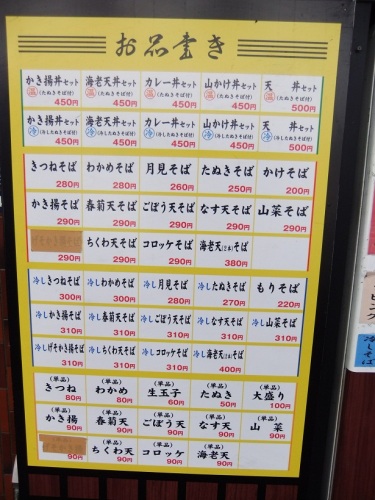 お品書き
かき揚丼セット 海老天丼セット カレー丼セット 山かけ丼セット 天 丼セット
温(たぬきそば付) 温(たぬきそば付) 温(たぬきそば付) 温(たぬきそば付) 温(たぬきそば付)
450円 450円 450円 450円 500円
かき揚丼セット 海老天丼セット カレー丼セット 山かけ丼セット 天 丼セット
冷(冷したぬきそば付) 冷(冷したぬきそば付) 冷(冷したぬきそば付) 冷(冷したぬきそば付) 冷(冷したぬきそば付)
450円 450円 450円 450円 500円
きつねそば わかめそば 月見そば たぬきそば かけそば
280円 280円 260円 250円 200円
かき揚そば 春菊天そば ごぼう天そば なす天そば 山菜そば
290円 290円 290円 290円 290円
げそかき揚そば ちくわ天そば コロッケそば 海老天(2本)そば
290円 290円 290円 380円
冷しきつねそば 冷しわかめそば 冷し月見そば 冷したぬきそば もりそば
300円 300円 280円 270円 220円
冷しかき揚そば 冷し春菊天そば 冷しごぼう天そば 冷しなす天そば 冷し山菜そば
310円 310円 310円 310円 310円
冷しげそかき揚そば 冷しちくわ天そば 冷しコロッケそば 冷し海老天(2本)そば
310円 310円 310円 400円
(単品) (単品) (単品) (単品) (単品)
きつね わかめ 生玉子 たぬき 大盛り
80円 80円 60円 50円 100円
(単品) (単品) (単品) (単品) (単品)
かき揚 春菊天 ごぼう天 なす天 山 菜
90円 90円 90円 90円 90円
(単品) (単品) (単品) (単品)
ちくわ天 コロッケ 海老天
90円 90円 90円 90円
冷しそば